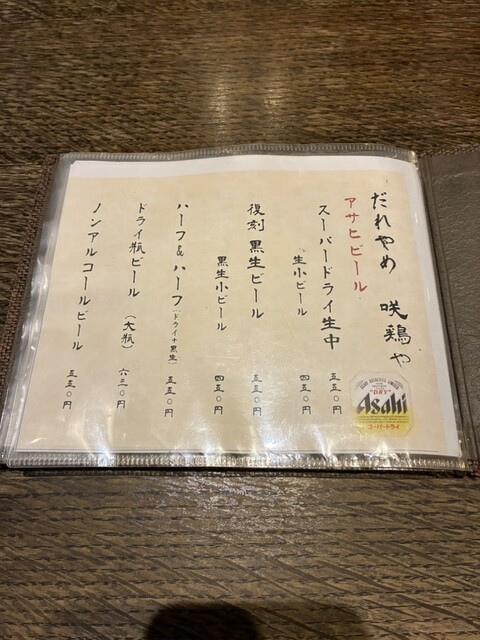 だれやめ 咲鶏や
アサヒビール
スーパードライ生中 五五〇円
生小ビール 四五〇円
復刻 黒生ビール 五五〇円
黒生小ビール 四五〇円
ハーフ&ハーフ(ドライ+黒生) 五五〇円
ドライ瓶ビール (大瓶) 六三〇円
ノンアルコールビール 五五〇円
"DRY"
Asahi
スーパードライ